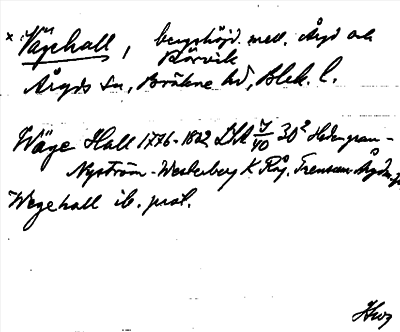 × Vägehall, bergshöjd mell. Åryd och
Börvik
Åryds sn, Bräkne hd, Blek. l.
Wäge Hall 1776-1802 LSA 7/40 30² Hedengran-
Nyström-Westerberg K Rå, Trensum Åryd
Wegehall ib. prot.